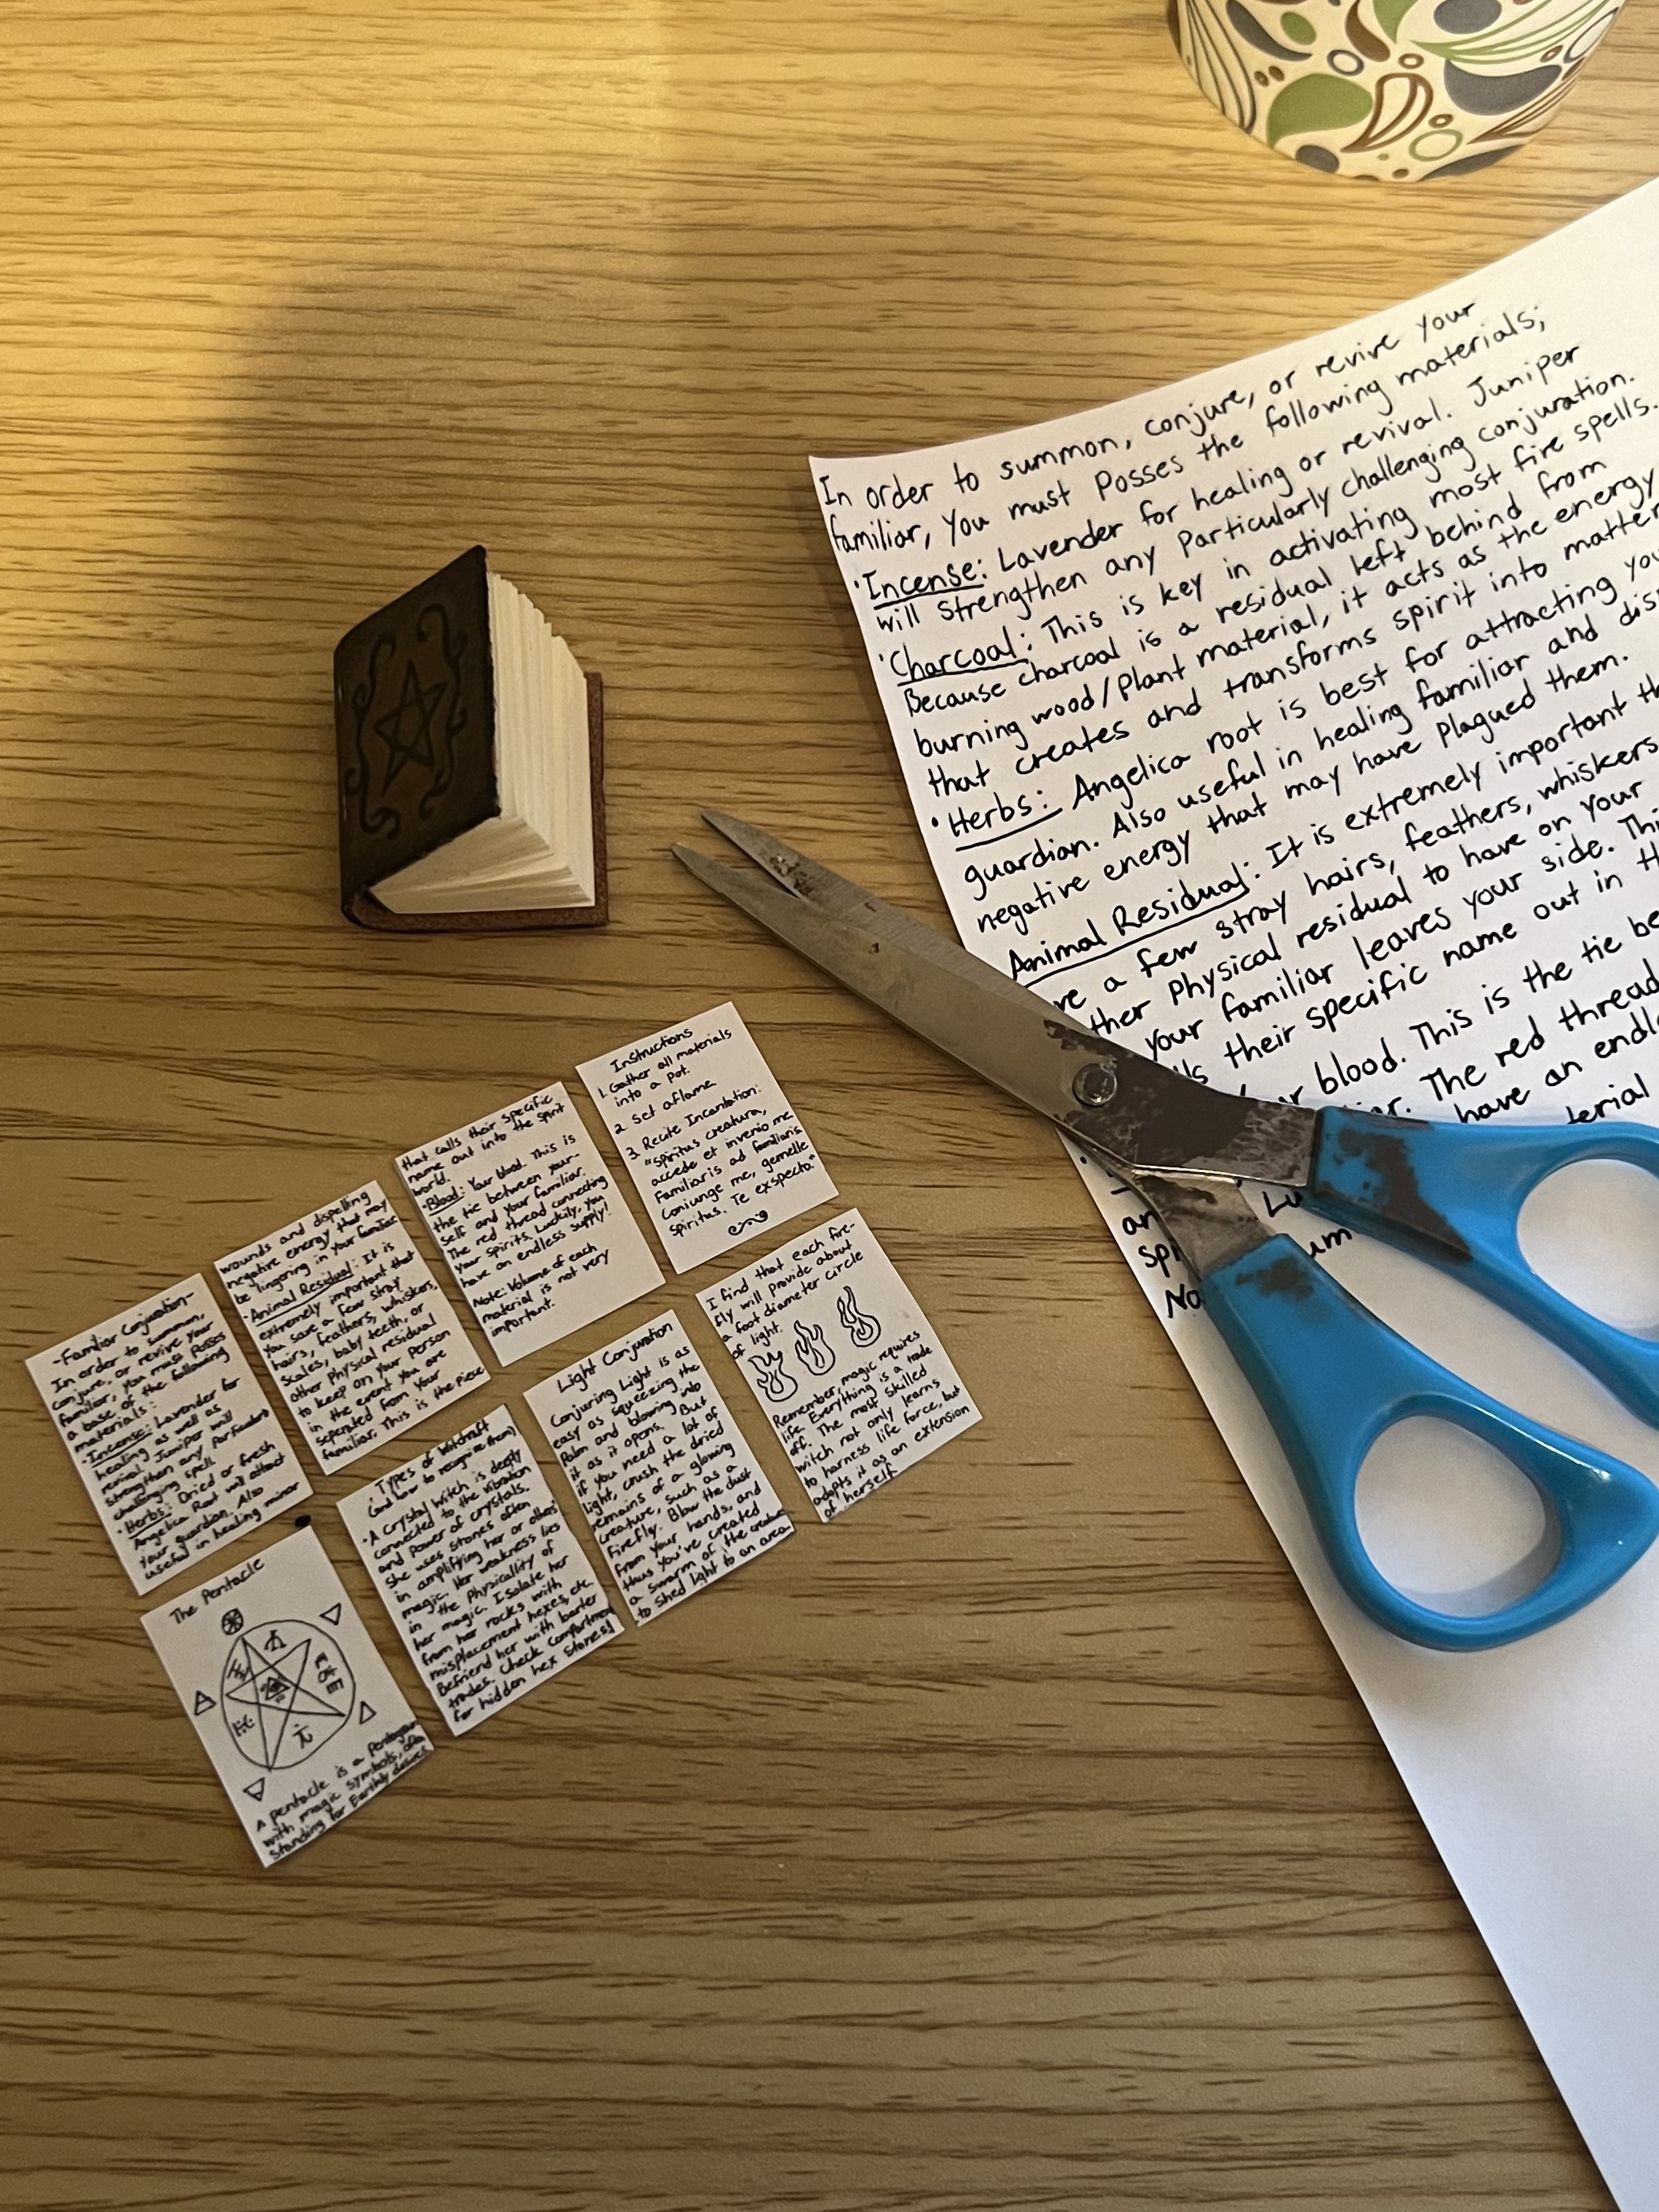 In order to summon, conjure, or revive your
familiar, you must Posses the following materials;
·Incense: Lavender for healing or revival. Juniper
will strengthen any Particularly challenging conjuration.
·Charcoal: This is key in activating most fire spells.
Because charcoal is a residual left behind from
burning wood/Plant material, it acts as the energy
that creates and transforms spirit into matter
·Herbs: Angelica root is best for attracting
guardian. Also useful in healing familiar and
negative energy that may have Plagued them.
Animal Residual: It is extremely important
a few stray hairs, feathers, whiskers
Physical residual to have on your
your familiar leaves your side.
their specific name out in
blood. This is the tie
The red thread
have an
No
-Familiar Conjuration-
In order to summon,
conjure, or revive your
familiar, you must Posses
a base of the following
materials:
·Incense: Lavender for
healing as well as
revival. Juniper will
strengthen any Particularly
challenging spell
·Herbs: Dried or fresh
Angelica Root will attract
your guardian. Also
useful in healing minor
wounds and dispelling
negative energy that may
be lingering in your familiar
·Animal Residual: It is
extremely important that
you save a few stray
hairs, feathers, whiskers,
scales, baby teeth, or
other Physical residual
to keep on your Person
in the event you are
seperated from your
familiar. This is the Piece
that calls their specific
name out into the spirit
world.
·Blood: Your blood. This is
the tie between your-
self and your familiar.
The red thread connecting
your spirits. Luckily, you
have an endless supply!
Note: Volume of each
material is not very
important.
Instructions
1. Gather all materials
into a Pot.
2 Set aflame
3. Recite Incantation:
"Spiritus creatura,
accede et invenio me
Familiaris ad familiaris
Coniunge me, gemelle
spiritus. Te exspecto."
The Pentacle
A Pentacle is a Pentagram
with magic symbols, often
standing for Earthly desires
Types of Witchcraft
(and how to recognize them)
·A Crystal Witch is deeply
connected to the vibration
and Power of crystals.
She uses stones often
in amplifying her or others'
magic. Her weakness lies
in the Physicallity of
her magic. Isolate her
from her rocks with
misplacement hexes, etc.
Befriend her with barter
trades. Check compartments
for hidden hex stones!
Light Conjuration
Conjuring Light is as
easy as squeezing the
Palm and blowing into
it as it opens. But
if you need a lot of
light, crush the dried
remains of a glowing
creature, such as a
firefly. Blow the dust
from your hands, and
thus you've created
a swarm of the creature
to shed light to an area
I find that each fire-
fly will provide about
a foot diameter circle
of light.
Remember, magic requires
life. Everything is a trade
off. The most skilled
witch not only learns
to harness life force, but
adapts it as an extension
of herself.